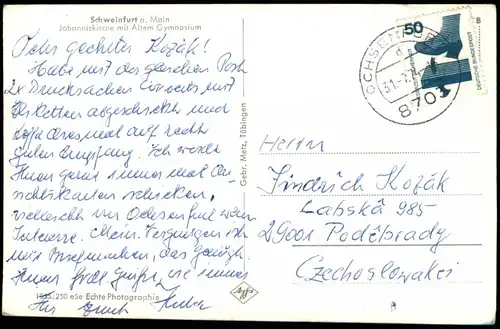 Schweinfurt a. Main
Johanniskirche mit Altem Gymnasium
Sehr geehrter Kozák!
Habe mit der gleichen Post
2x Drucksachen mit
abgeschickt und
hoffe diesmal auf recht
guten Empfang. Ich werde
Ihnen gerne immer mal An-
sichtskarten schicken,
vielleicht von Ochsenfurt wenn
Interesse. Mein
mit Briefmarken, das
Ihnen Grüße, wie immer
Ihr
10 250 eSe Echte Photographie
Gebr. Metz, Tübingen
Agfa
OCHSENFURT
d
31.-7.74
870
50
DEUTSCHE BUNDESPOST
Herrn
Jindřich Kozák
Labská 985
29001 Poděbrady
Czechoslowakei